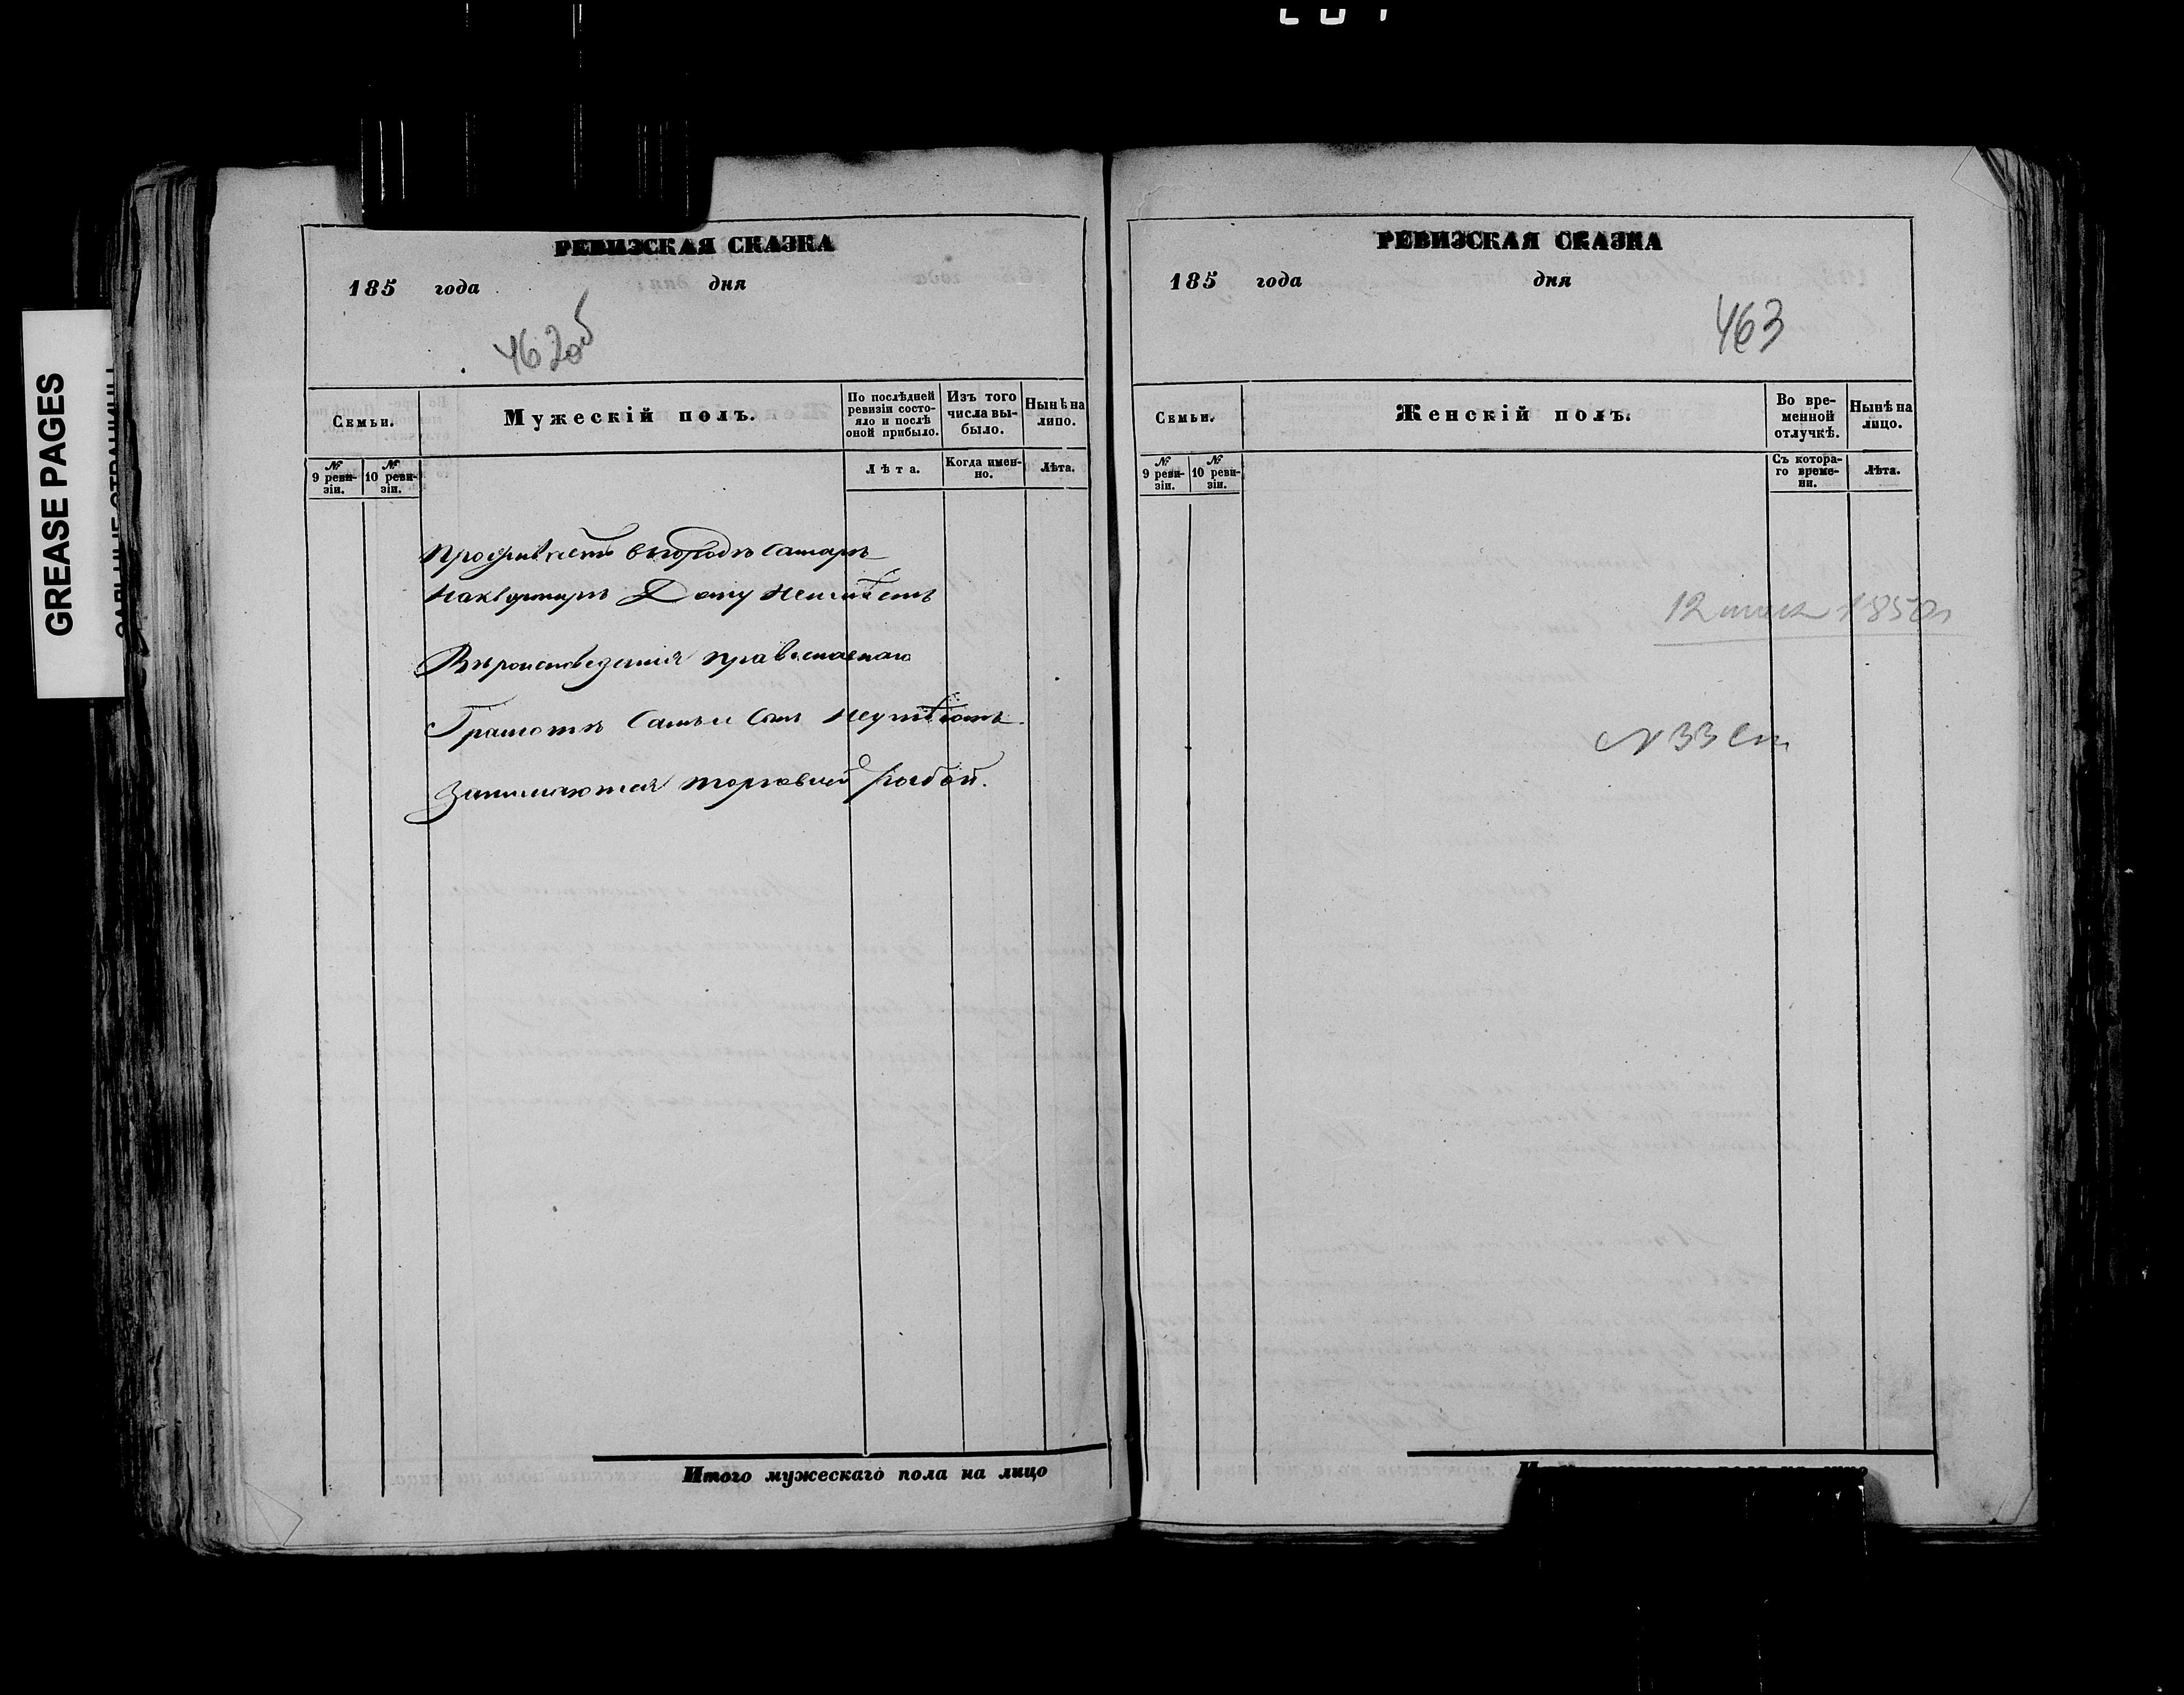 GREASE PAGES
РЕВИЗСКАЯ СКАЗКА
185 года дня
462об
Семьи.
Мужескій полъ.
По послѣдней ревизіи состояло и послѣ оной прибыло.
Изъ того числа выбыло.
Нынѣ на лицо.
№ 9 ревизіи.
№ 10 ревизіи.
Лѣта.
Когда именно.
Лѣта.
Проживаетъ въ городѣ Самарѣ
на квартирѣ Дому неимѣетъ
Вѣроисповеданія православнаго
Грамотѣ Самъ и Сынъ неумѣютъ.
Занимаются торговлей рыбой.
Итого мужескаго пола на лицо
РЕВИЗСКАЯ СКАЗКА
185 года дня
463
Семьи.
Женскій полъ.
Во временной отлучкѣ.
Нынѣ на лицо.
№ 9 ревизіи.
№ 10 ревизіи.
Съ котораго времени.
Лѣта.
12 1850
№ 33